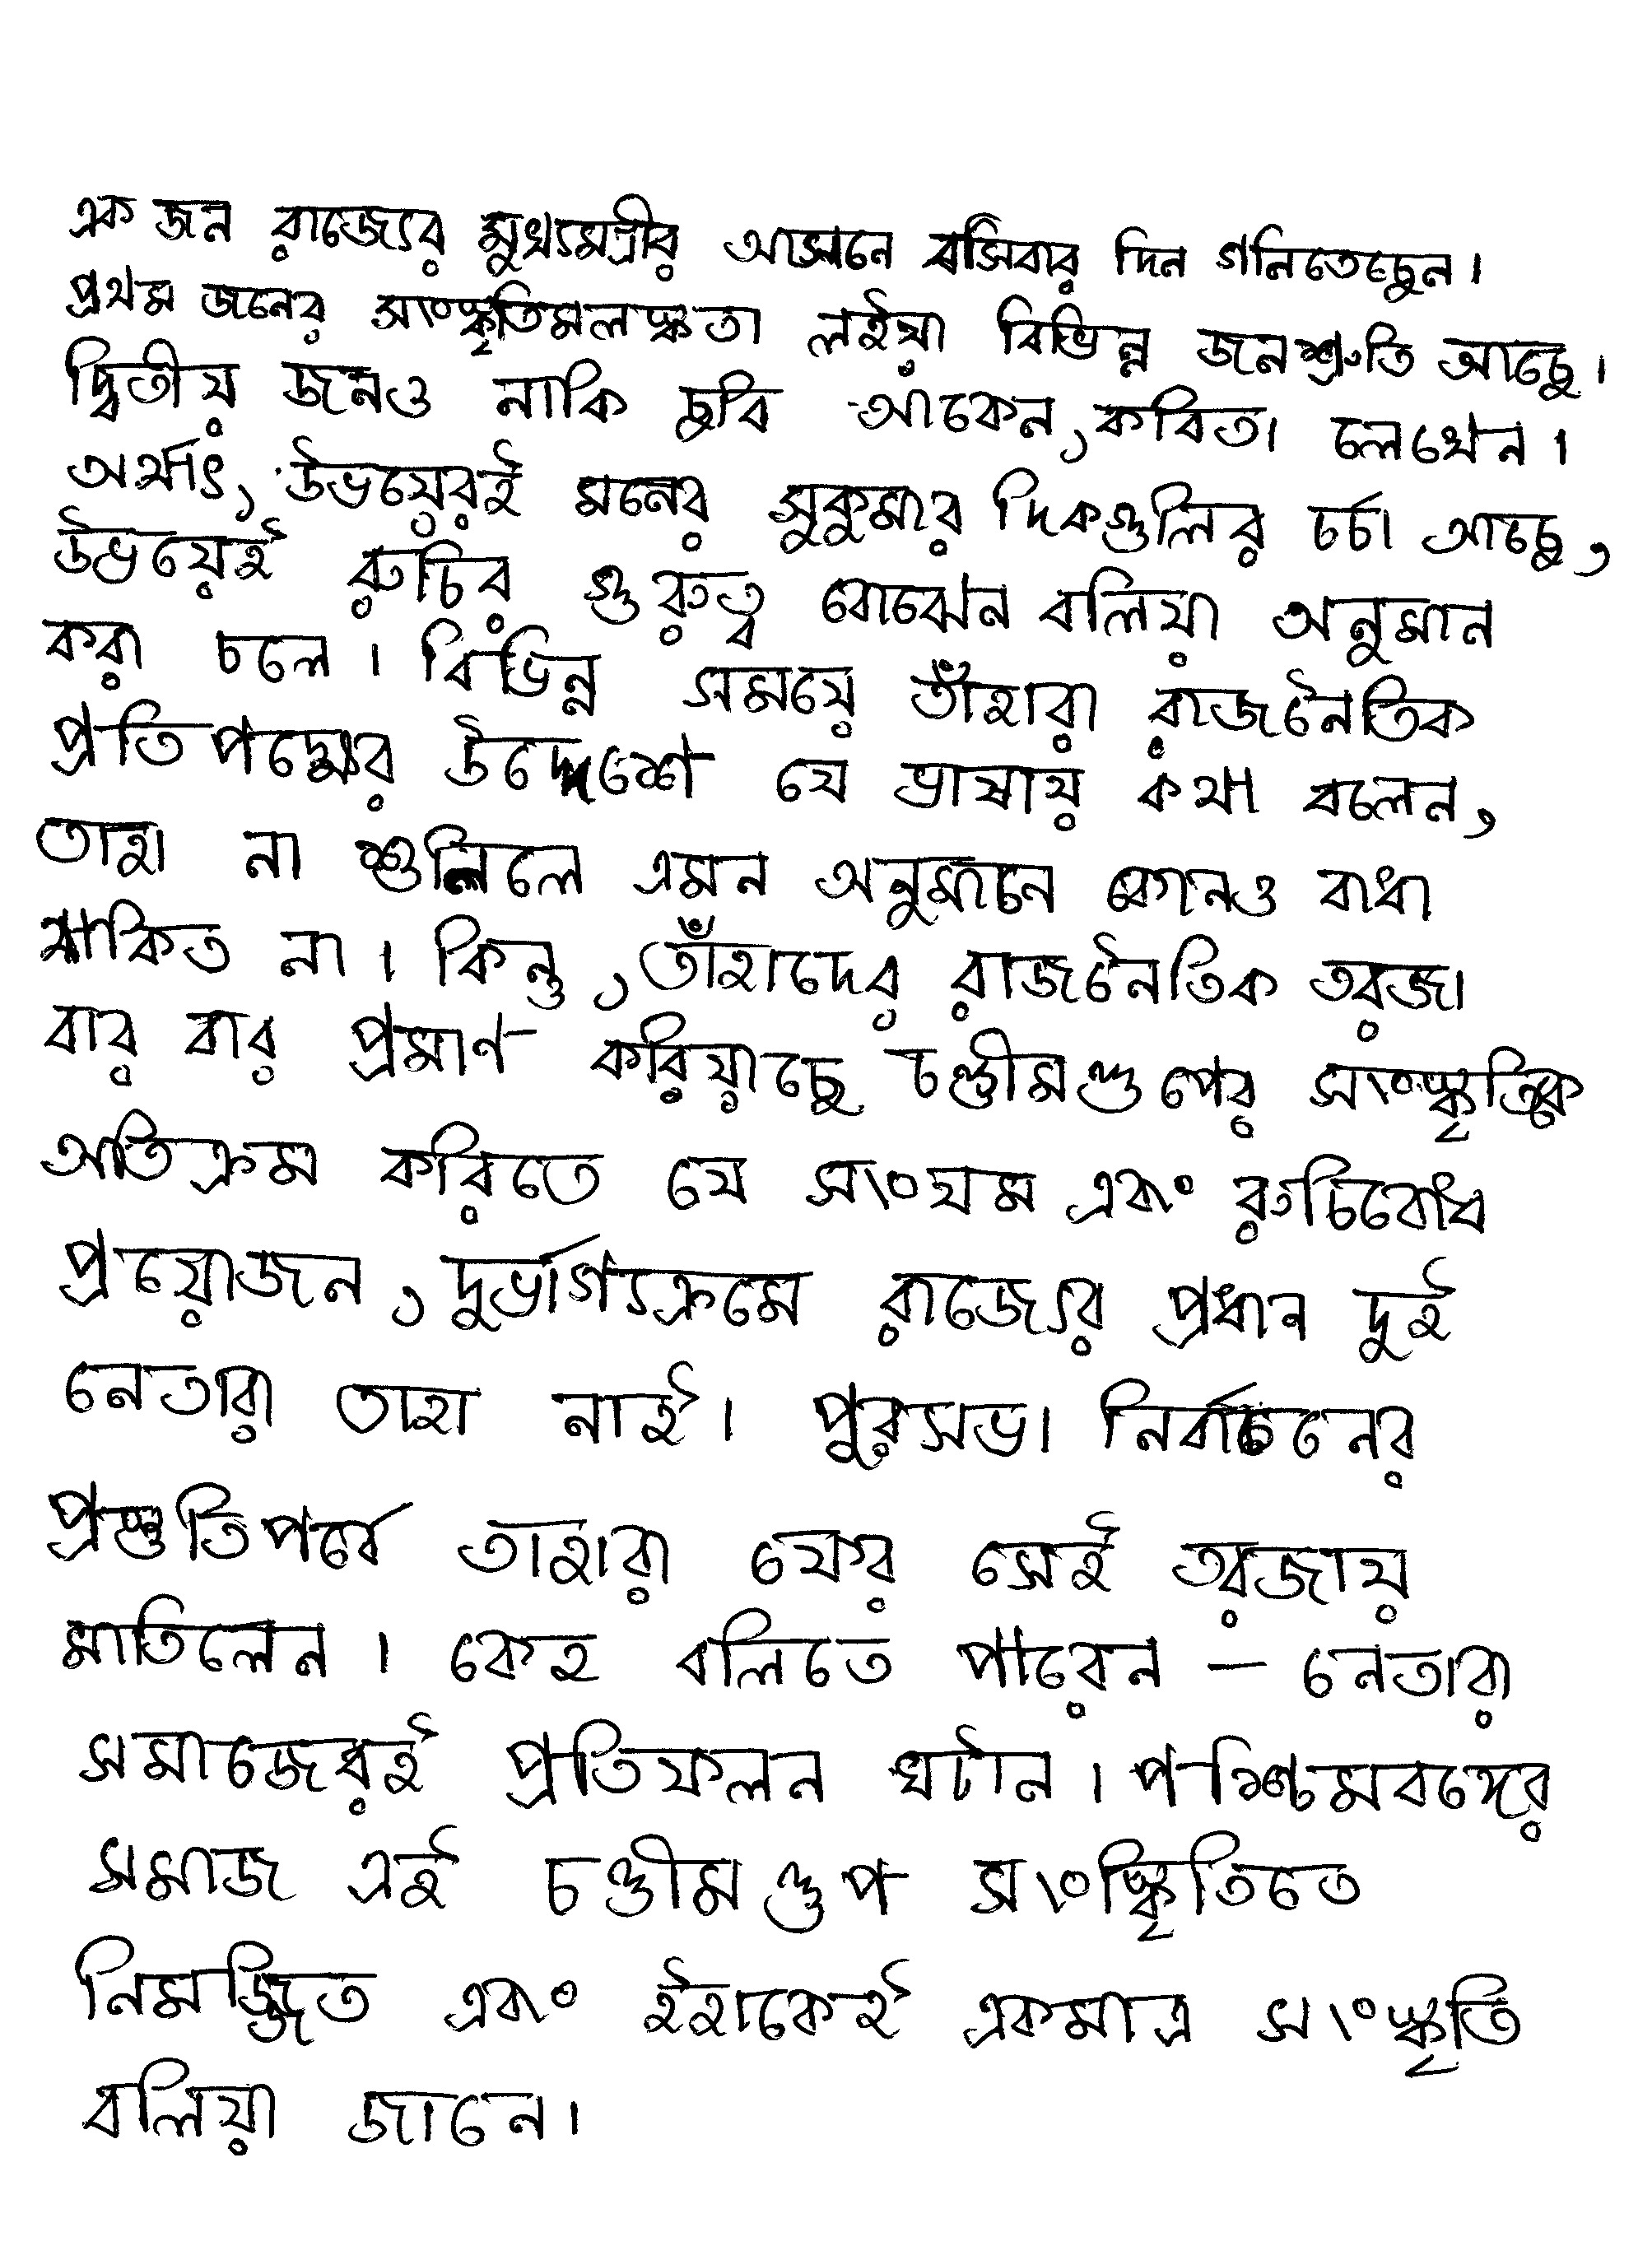 এক জন রাজ্যের মুখ্যমন্ত্রীর আসনে বসিবার দিন গনিতেছেন।
প্রথম জনের সাংস্কৃতিমলস্কতা লইয়া বিভিন্ন জনশ্রুতি আছে।
দ্বিতীয় জনও নাকি ছবি আঁকেন, কবিতা লেখেন।
অর্থাৎ, উভয়েরই মনের সুকুমার দিকগুলির চর্চা আছে,
উভয়েই রুচির গুরুত্ব বোঝেন বলিয়া অনুমান
করা চলে। বিভিন্ন সময়ে তাঁহারা রাজনৈতিক
প্রতিপক্ষের উদ্দেশে যে ভাষায় কথা বলেন,
তাহা না শুনিলে এমন অনুমানে কোনও বাধা
থাকিত না। কিন্তু, তাঁহাদের রাজনৈতিক তরজা
বার বার প্রমাণ করিয়াছে চণ্ডীমণ্ডপের সাংস্কৃতিকে
অতিক্রম করিতে যে সাংযম এবাং রুচিবোধ
প্রয়োজন, দুর্ভাগ্যক্রমে রাজ্যের প্রধান দুই
নেতারা তাহা নাই। পুরসভা নির্বাচনের
প্রস্তুতিপর্বে তাহারা ফের সেই তরজায়
মাতিলেন। কেহ বলিতে পারেন – নেতারা
সমাজেরই প্রতিফলন ঘটান। পশ্চিমেবঙ্গের
সমাজ এই চণ্ডীমণ্ডপ সাংস্কৃতিতে
নিমজ্জিত এবাং ইহাকেই একমাত্র সাংস্কৃতি
বলিয়া জানে।